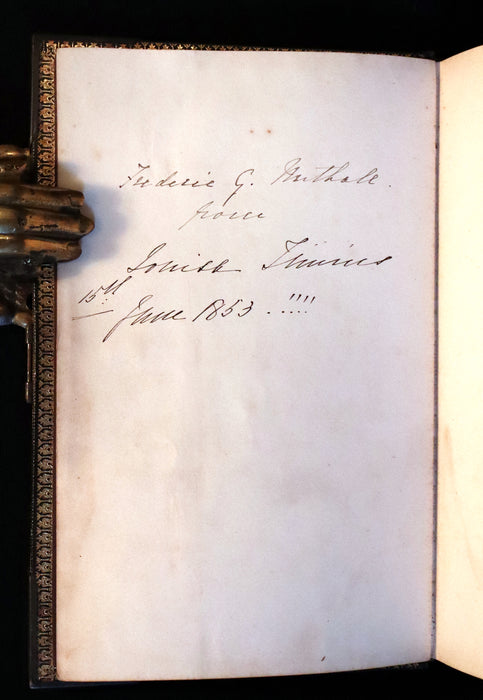 Frederic G. Nuthall.
from
Louisa
15th
June 1853 . !!!!